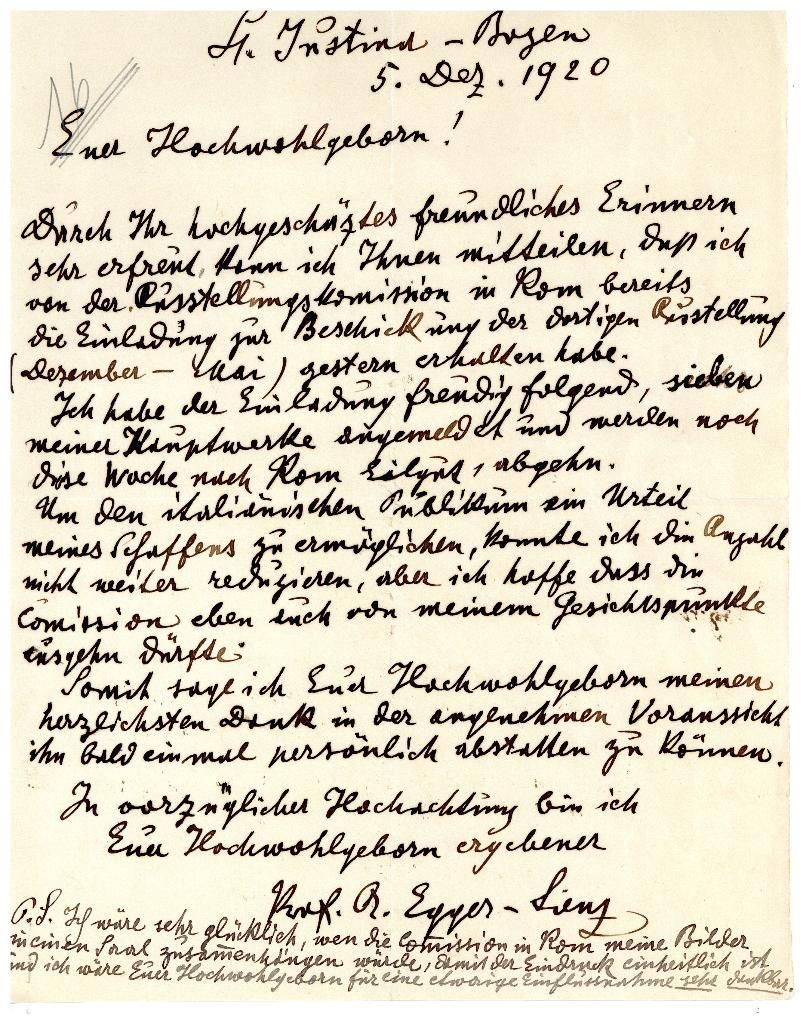 St. Justina – Bozen
5. Dez. 1920
Euer Hochwohlgeborn!
Durch Ihr hochgeschäztes freundliches Erinnern
sehr erfreut, kann ich Ihnen mitteilen, daß ich
von der Ausstellungskomission in Rom bereits
die Einladung zur Beschickung der dortigen Ausstellung
(Dezember – Mai) gestern erhalten habe.
Ich habe der Einladung freudig folgend, sieben
meiner Hauptwerke angemeldet und werden noch
diese Woche nach Rom Eilgut, abgehn.
Um den italiänischen Publikum ein Urteil
meines Schaffens zu ermöglichen, konnte ich die Anzahl
nicht weiter reduzieren, aber ich hoffe dass die
Comission eben auch von meinem Gesichtspunkte
ausgehn dürfte.
Somit sage ich Euer Hochwohlgeborn meinen
herzlichsten Dank in der angenehmen Voraussicht
ihn bald einmal persönlich abstatten zu können.
In vorzüglicher Hochachtung bin ich
Euer Hochwohlgeborn ergebener
Prof. A. Egger-Lienz
P.S. Ich wäre sehr glücklich, wen die Comission in Rom meine Bilder
in einen Saal zusammenhängen würde, damit der Eindruck einheitlich ist
und ich wäre Euer Hochwohlgeborn für eine etwaige Einflussnahme sehr dankbar.